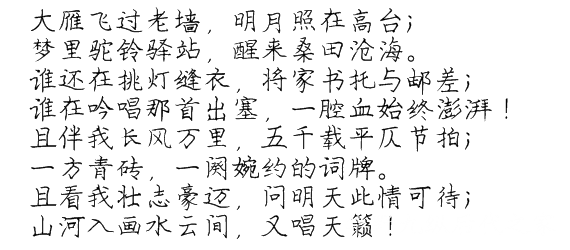 大雁飞过老墙，明月照在高台；
梦里驼铃驿站，醒来桑田沧海。
谁还在挑灯缝衣，将家书托与邮差；
谁在吟唱那首出塞，一腔血始终澎湃！
且伴我长风万里，五千载平仄节拍；
一方青砖，一阕婉约的词牌。
且看我壮志豪迈，问明天此情可待；
山河入画水云间，又唱天籁！